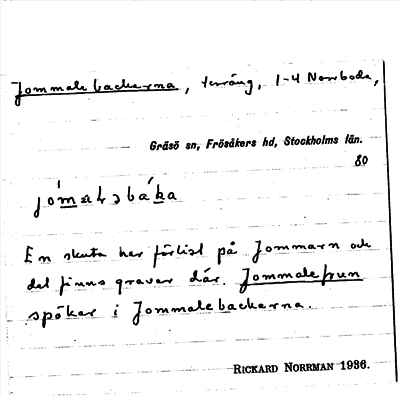 Jommalebackarna, terräng, 1-4 Norrboda,
Gräsö sn, Frösåkers hd, Stockholms län.
80
En skuta har förlist på Jommarn och
det finns gravar där. Jommalefrun
spöker i Jommalebackarna.
RICKARD NORRMAN 1936.